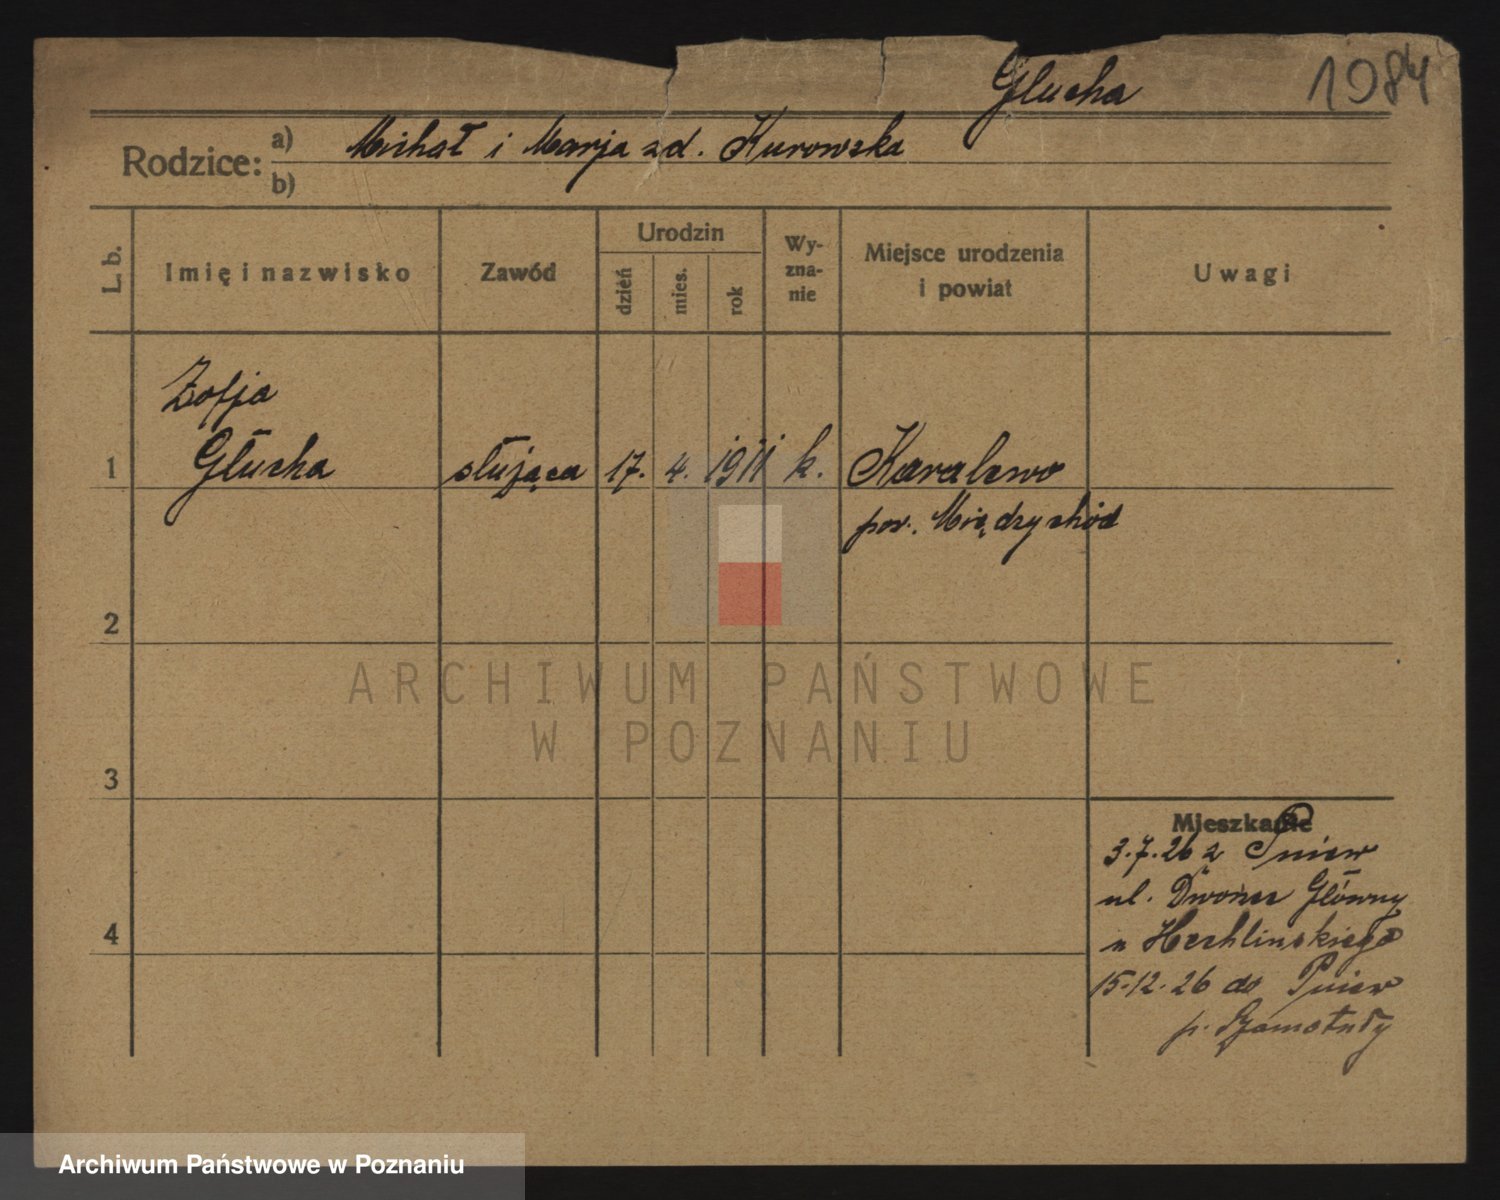 Głucha
1984
Rodzice: a) Michał i Marja zd. Kurowska
b)
L. b.
Imię i nazwisko
Zawód
Urodzin
dzień
mies.
rok
Wy-
zna-
nie
Miejsce urodzenia
i powiat
Uwagi
Zofja
1 Głucha służąca 17. 4. 1911 k. Kavalewo
pow. Międzychód
2
3
4
Mieszkanie
3.7.26 z Pniew
ul. Dworzec Główny
u
15.12.26 do Pniew
p. Szamotuły
ARCHIWUM PAŃSTWOWE
W POZNANIU
Archiwum Państwowe w Poznaniu